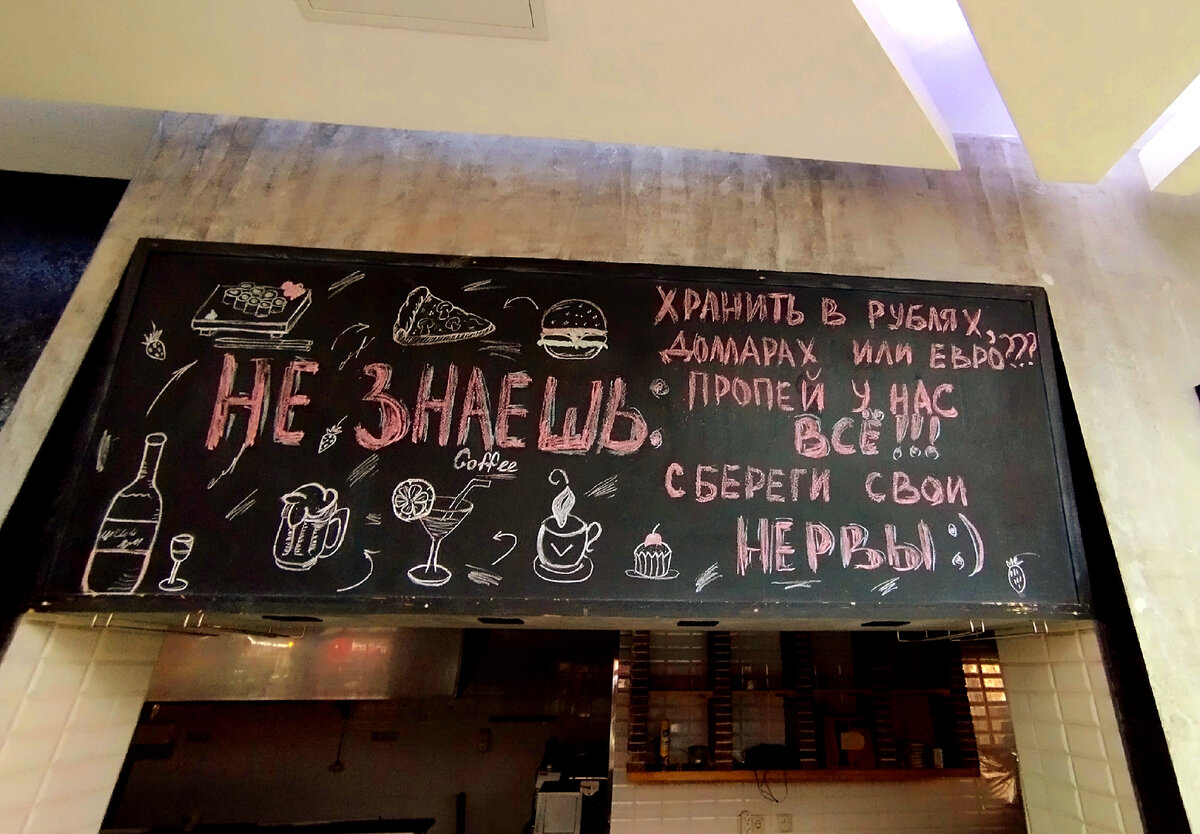 НЕ ЗНАЕШЬ:
Coffee
ХРАНИТЬ В РУБЛЯХ,
ДОЛЛАРАХ ИЛИ ЕВРО???
ПРОПЕЙ У НАС
ВСЁ!!!
СБЕРЕГИ СВОИ
НЕРВЫ ;)